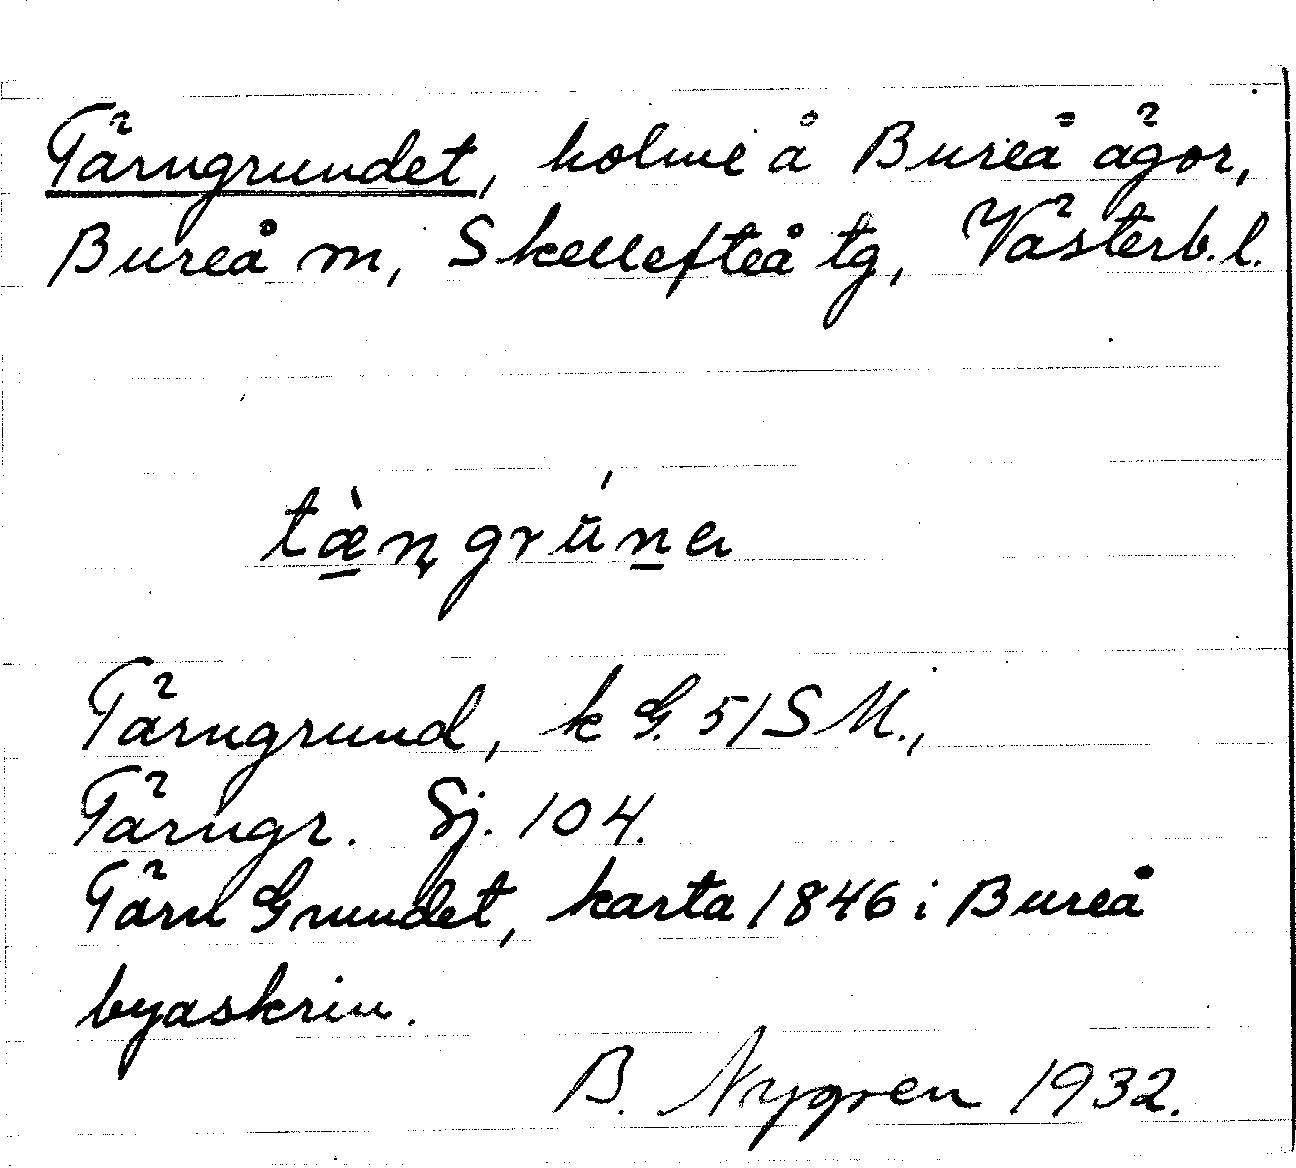 Tärngrundet, holme å Bureå ägor,
Bureå m, Skellefteå tg, Västerb. l.
tæ̀ṇgrúna
Tärngrund, k G. 51 S M.,
Tärngr. Sj. 104.
Tärn Grundet, karta 1846 i Bureå
byaskrin.
B. Nygren 1932.